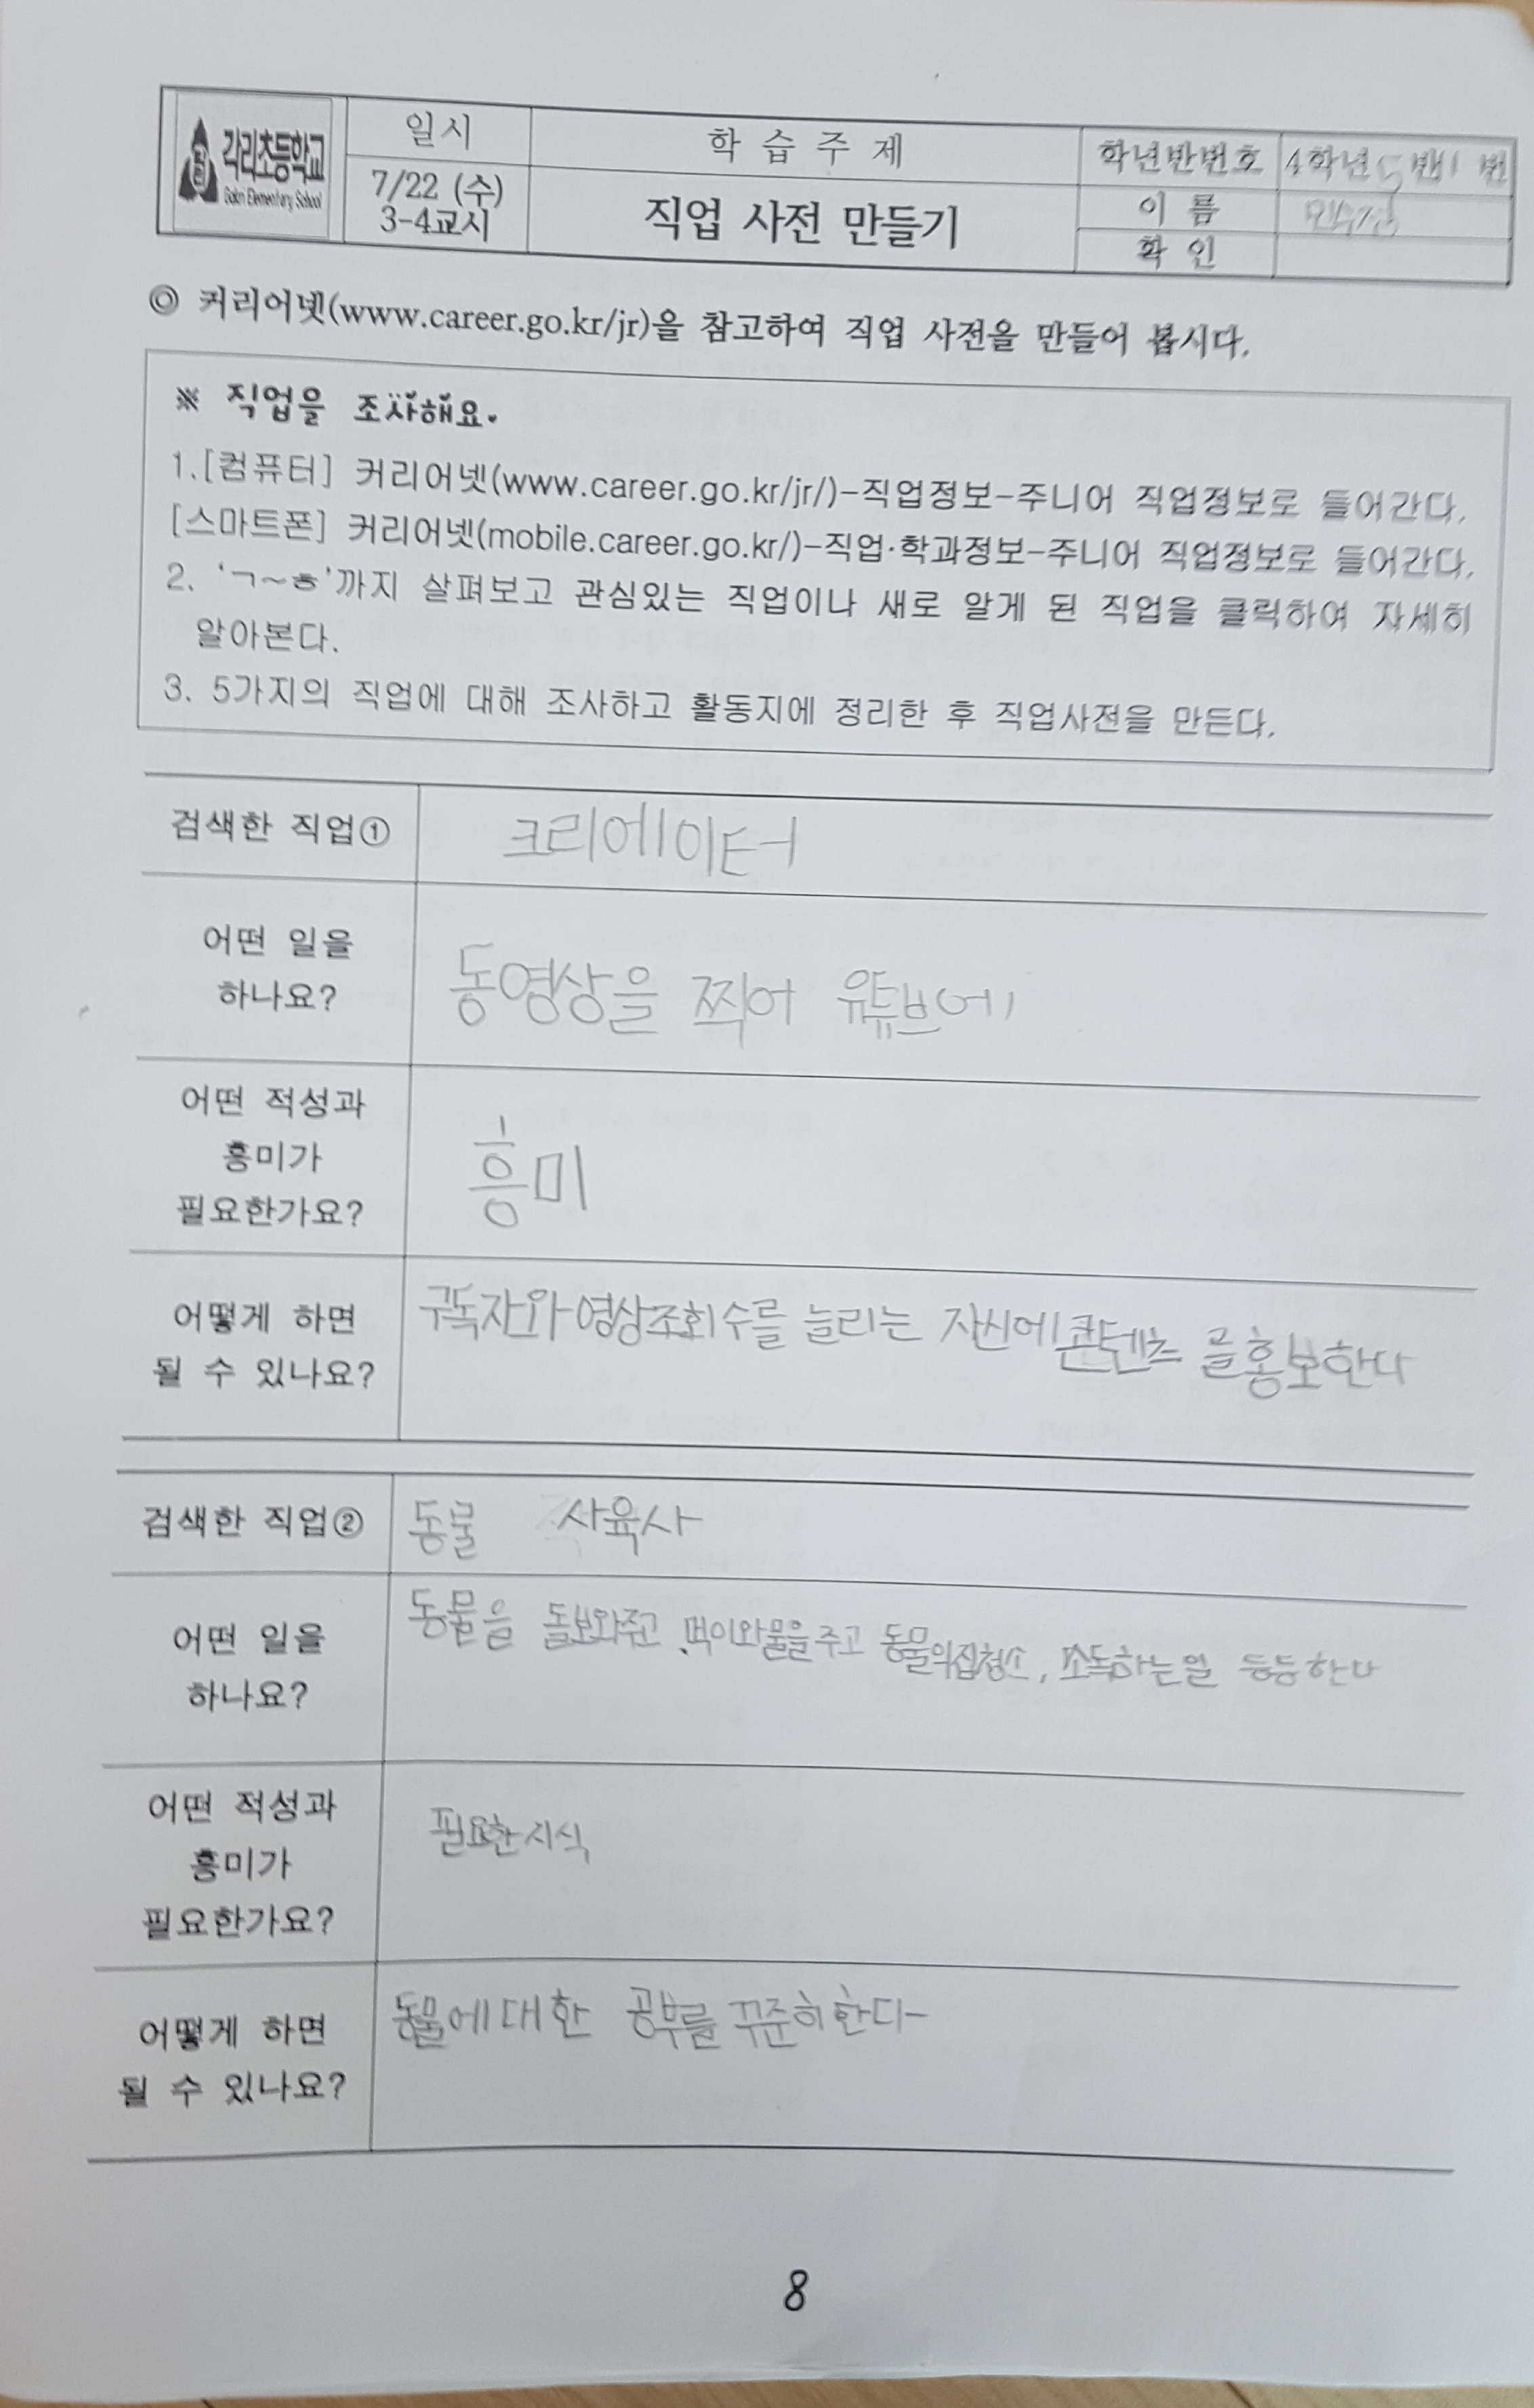 각리초등학교
Gakri Elementary School
일시
7/22 (수)
3-4교시
학 습 주 제
직업 사전 만들기
학년반번호
4학년 5반 번
이 름
확 인
◎ 커리어넷(www.career.go.kr/jr)을 참고하여 직업 사전을 만들어 봅시다.
※ 직업을 조사해요.
1.[컴퓨터] 커리어넷(www.career.go.kr/jr/)-직업정보-주니어 직업정보로 들어간다.
[스마트폰] 커리어넷(mobile.career.go.kr/)-직업·학과정보-주니어 직업정보로 들어간다.
2. 'ㄱ~ㅎ'까지 살펴보고 관심있는 직업이나 새로 알게 된 직업을 클릭하여 자세히
알아본다.
3. 5가지의 직업에 대해 조사하고 활동지에 정리한 후 직업사전을 만든다.
검색한 직업①
크리에이터
어떤 일을
하나요?
동영상을 찍어 유튜브에
어떤 적성과
흥미가
필요한가요?
흥미
어떻게 하면
될 수 있나요?
구독자와 영상조회수를 늘리는 자신에 콘텐츠 를 홍보한다
검색한 직업②
동물 사육사
어떤 일을
하나요?
동물을 돌보와주고, 먹이와물을주고 동물의집청소, 소독하는일 등등한다
어떤 적성과
흥미가
필요한가요?
필요한지식
어떻게 하면
될 수 있나요?
동물에대한 공부를 꾸준히한다
8